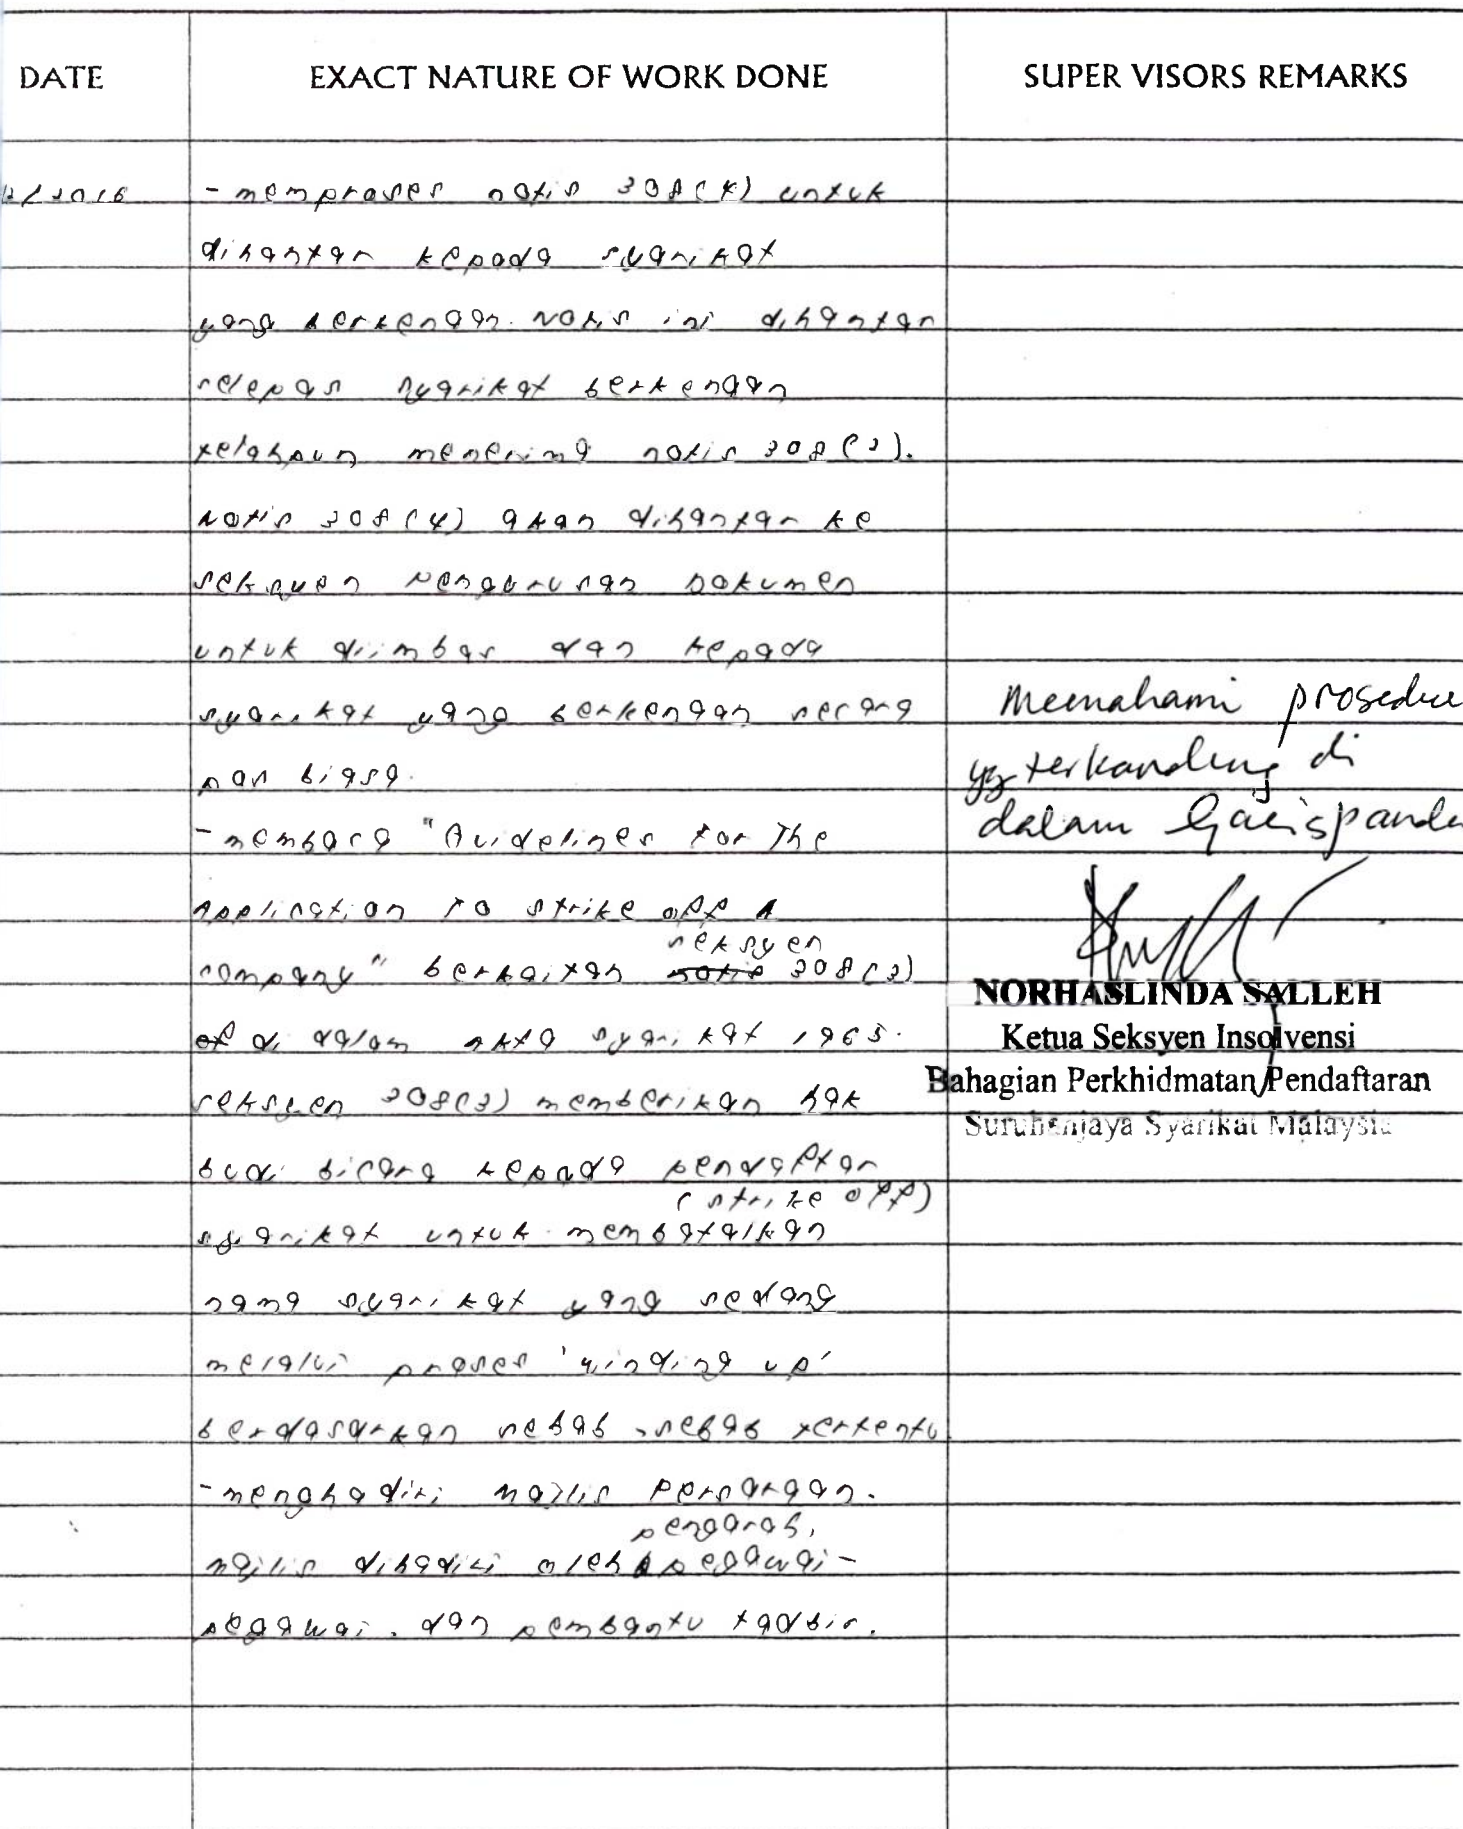 DATE EXACT NATURE OF WORK DONE SUPER VISORS REMARKS
/2016 - memproses notis 308(4) untuk
dihantar kepada syarikat
yang berkenaan. Notis ini dihantar
selepas syarikat berkenaan
telahpun menerima notis 308(2).
Notis 308(4) akan dihantar ke
seksyen Pengurusan Dokumen
untuk diimbas dan kepada
syarikat yang berkenaan secara
pos biasa.
- membaca "Guidelines for The
Application to strike off A
seksyen
company" berkaitan notis 308(3)
of di dalam Akta Syarikat 1965.
seksyen 308(3) memberikan hak
budi bicara kepada pendaftar
(strike off)
syarikat untuk membatalkan
nama syarikat yang sedang
melalui proses 'winding up'
berdasarkan sebab-sebab tertentu
- menghadiri majlis Persaraan.
pengarah,
majlis dihadiri oleh pegawai-
pegawai. dan pembantu tadbir.
Memahami prosedur
yg terkandung di
dalam Garispandu
NORHASLINDA SALLEH
Ketua Seksyen Insolvensi
Bahagian Perkhidmatan Pendaftaran
Suruhanjaya Syarikat Malaysia